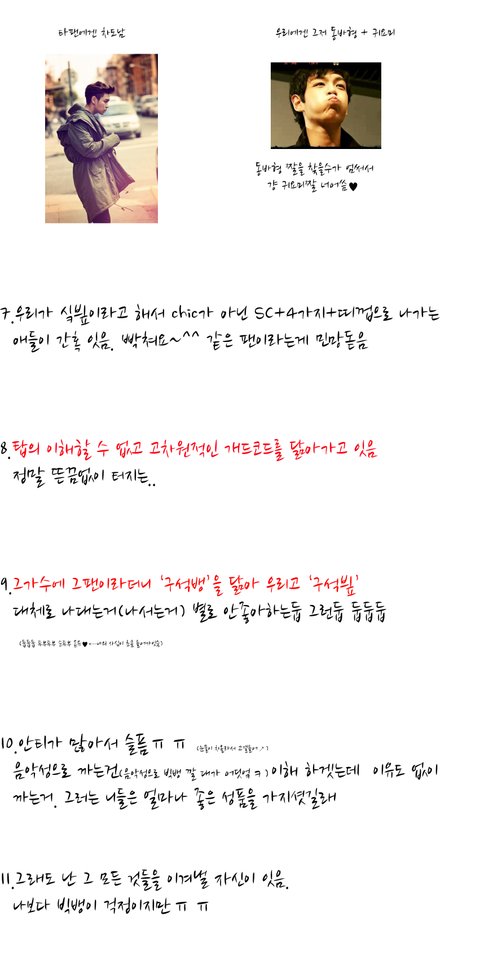 타팬에겐 차도남
우리에겐 그저 동바형 + 귀요미
동바형 짤을 찾을수가 엄써서
걍 귀요미짤 너어씀♥
7.우리가 식빂이라고 해서 chic가 아닌 SC+4가지+띠껍으로 나가는
애들이 간혹 잇음. 빡쳐요~^^ 같은 팬이라는게 민망돋음
8.탑의 이해할 수 없고 고차원적인 개드코드를 닮아가고 잇음
정말 뜬끔없이 터지는..
9.그가수에 그팬이라더니 '구석뱅'을 닮아 우리고 '구석빂'
대체로 나대는거(나서는거) 별로 안좋아하는듭 그런듭 듭듭듭
10.안티가 많아서 슬픔ㅠ ㅠ
음악성으로 까는건(음악성으로 빅뱅 깔 대가 어딧엌ㅋ) 이해 하겟는데 이유도 없이
까는거. 그러는 니들은 얼마나 좋은 성품을 가지셧길래
11.그래도 난 그 모든 것들을 이겨낼 자신이 있음.
나보다 빅뱅이 걱정이지만 ㅠ ㅠ